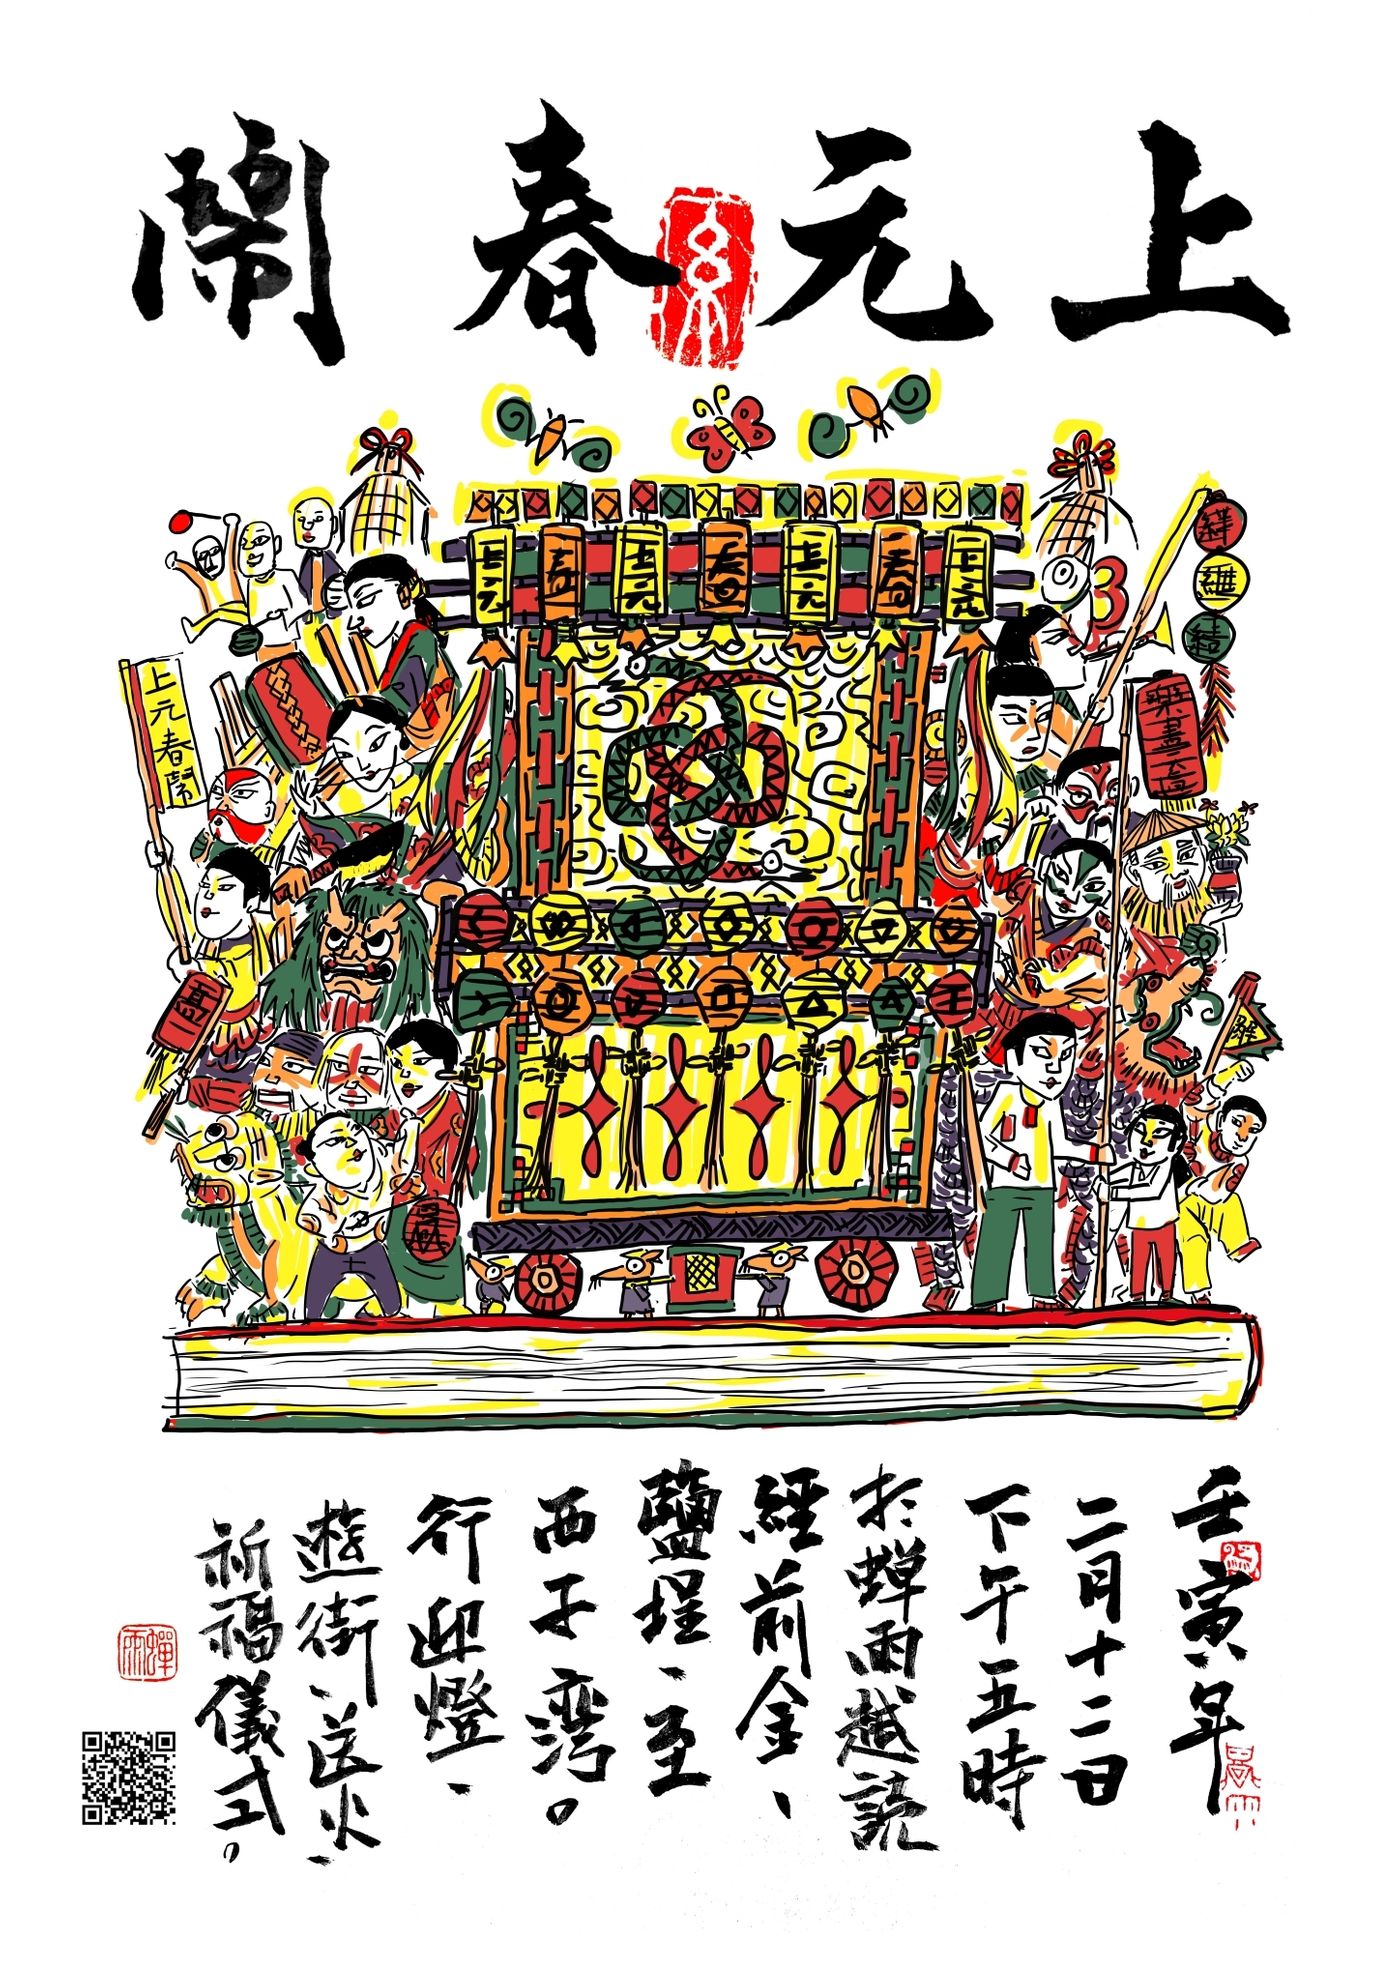 上元春鬧
上元
春
上元
春
上元
春
上元
上元春鬧
壬寅年
二月十二日
下午五時
於蟬雨越読
經前金、
鹽埕、至
西子湾。
行迎燈、
遊街、送火、
祈福儀式。
蟬雨